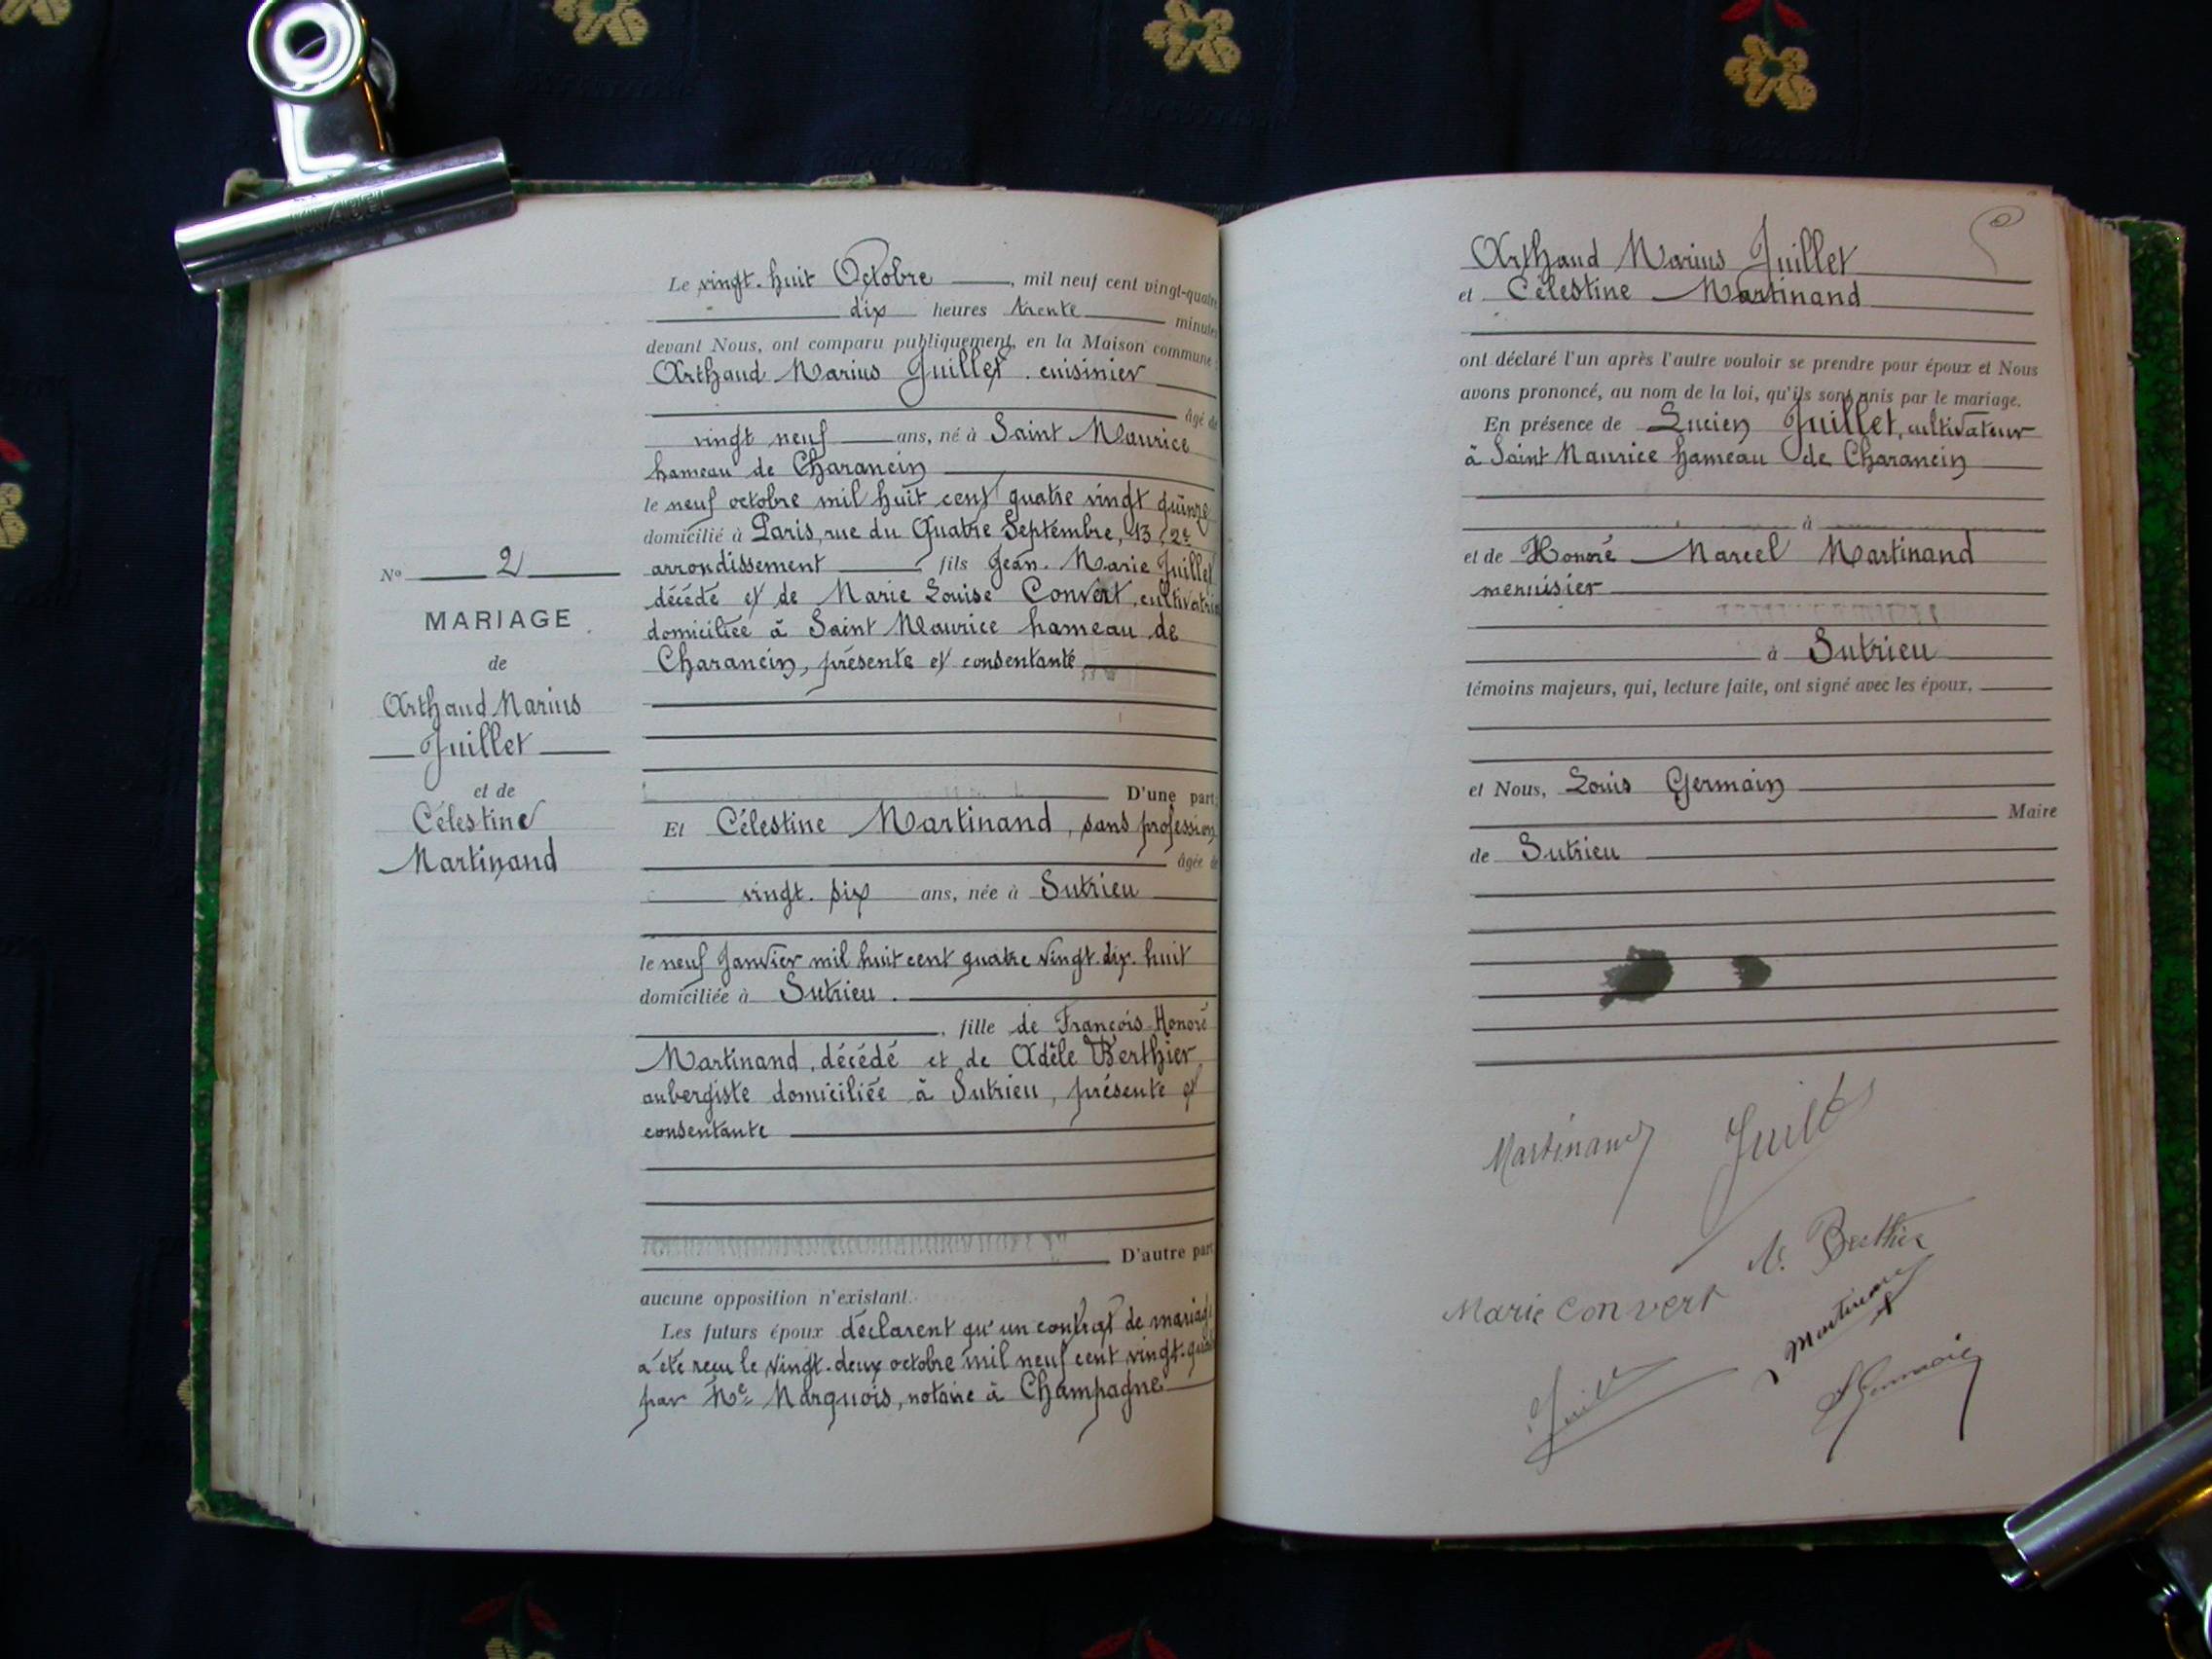 Le vingt-huit Octobre, mil neuf cent vingt-quatre
dix heures trente minutes
devant Nous, ont comparu publiquement, en la Maison commune:
Arthaud Marius Juillet, cuisinier
âgé de
vingt neuf ans, né à Saint Maurice
hameau de Charancin
le neuf octobre mil huit cent quatre vingt quinze
domicilié à Paris, rue du Quatre Septembre, 13, 2e
arrondissement, fils Jean-Marie Juillet
décédé et de Marie Louise Convert, cultivatrice
domiciliée à Saint Maurice hameau de
Charancin, présente et consentante
D'une part;
Et Célestine Martinand, sans profession
âgée de
vingt-six ans, née à Sutrieu
le neuf Janvier mil huit cent quatre vingt-dix-huit
domiciliée à Sutrieu.
, fille de François-Honoré
Martinand, décédé et de Adèle Berthier
aubergiste domiciliée à Sutrieu, présente et
consentante
D'autre part
aucune opposition n'existant.
Les futurs époux déclarent qu'un contrat de mariage
a été reçu le vingt-deux octobre mil neuf cent vingt-quatre
par Me Marquois, notaire à Champagne
No 2
MARIAGE
de
Arthaud Marius
Juillet
et de
Célestine
Martinand
Arthaud Marius Juillet
et Célestine Martinand
ont déclaré l'un après l'autre vouloir se prendre pour époux et Nous
avons prononcé, au nom de la loi, qu'ils sont unis par le mariage.
En présence de Lucien Juillet, cultivateur
à Saint Maurice hameau de Charancin
à
et de Honoré Marcel Martinand
menuisier
à Sutrieu
témoins majeurs, qui, lecture faite, ont signé avec les époux,
et Nous, Louis Germain
Maire
de Sutrieu
Martinand Juillet
Berthier
Marie Convert
Martinand
Juillet
Germain